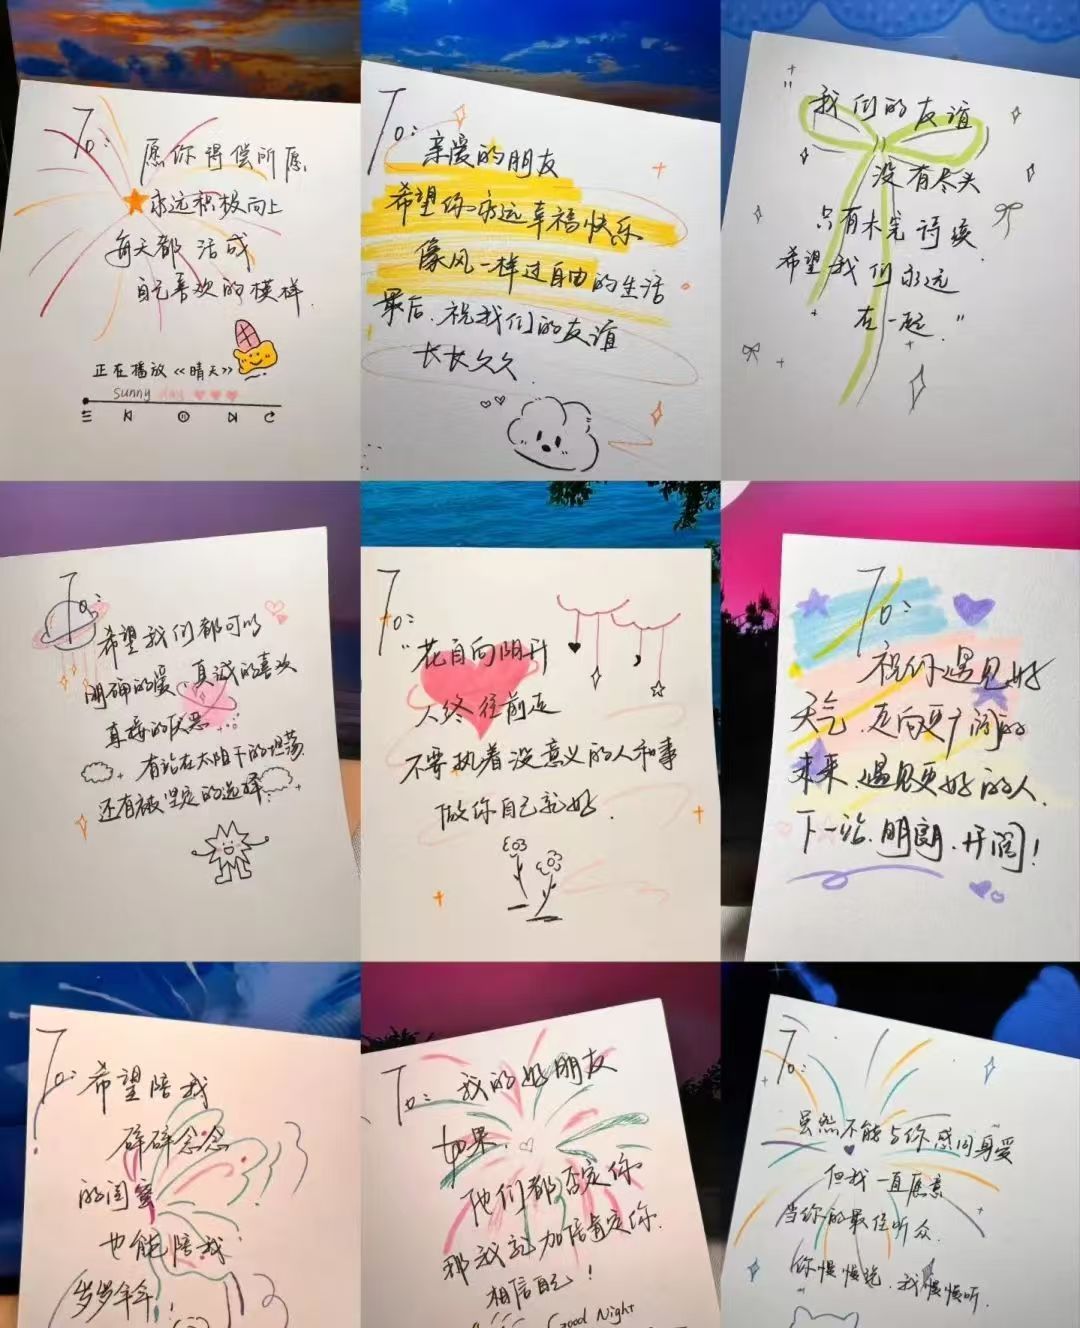 To:
愿你得偿所愿
永远积极向上
每天都活成
自己喜欢的模样.
正在播放《晴天》
sunny day
To:
亲爱的朋友
希望你永远幸福快乐
像风一样过自由的生活
最后.祝我们的友谊
长长久久.
"我们的友谊
没有尽头
只有未完待续
希望我们永远
在一起."
To:
希望我们都可以
明确的爱、真诚的喜欢
直接的厌恶
有站在太阳下的坦荡
还有被坚定的选择
To:
"花自向阳开
人终往前走
不要执着没意义的人和事
做你自己就好.
To:
祝你遇见好
天气.走向更广阔的
未来.遇见更好的人.
下一站.明朗.开阔!
To:
希望陪我
碎碎念念
的闺蜜
也能陪我
岁岁年年.
To: 我的好朋友
如果.
他们都否定你
那我就加倍肯定你.
相信自己!
Good Night
To:
虽然不能与你感同身受
但我一直愿意
当你的最佳听众.
你慢慢说.我慢慢听.